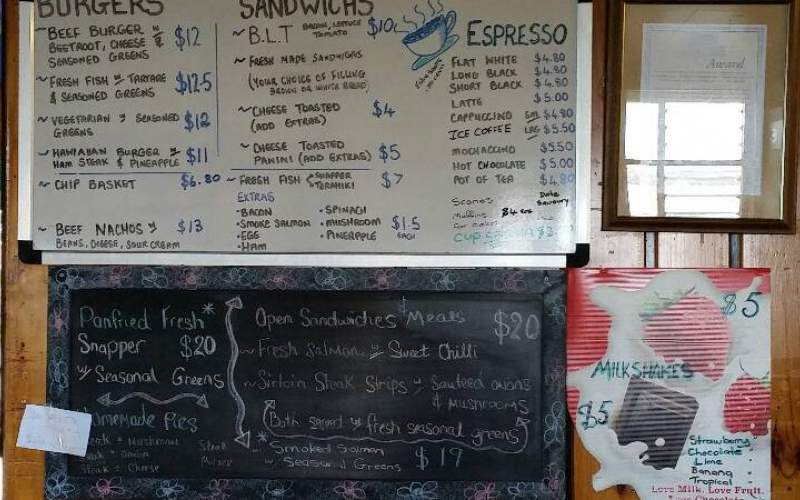 BURGERS
~ BEEF BURGER w/
BEETROOT, CHEESE &
SEASONED GREENS $12
~ FRESH FISH w/ TARTARE
& SEASONED GREENS $12.5
~ VEGETARIAN w/ SEASONED
GREENS $12
~ HAWIAHAN BURGER w/
HAM STEAK & PINEAPPLE $11
~ CHIP BASKET $6.80
~ BEEF NACHOS w/ $13
BEANS, CHEESE, SOUR CREAM
SANDWICHS
~ B.L.T BACON, LETTUCE TOMATO $10
~ FRESH MADE SANDWICHS
(YOUR CHOICE OF FILLING
BROWN OR WHITE BREAD)
~ CHEESE TOASTED $4
(ADD EXTRAS)
~ CHEESE TOASTED
PANINI (ADD EXTRAS) $5
~ FRESH FISH SNAPPER $7
EXTRAS
• BACON
• SMOKE SALMON
• EGG
• HAM
• SPINACH
• MUSHROOM
• PINEAPPLE
$1.5
EACH
ESPRESSO
FLAT WHITE $4.80
LONG BLACK $4.80
SHORT BLACK $4.80
LATTE $5.00
CAPPUCCINO SML $4.80
ICE COFFEE LRG $5.50
MOCHACCINO $5.50
HOT CHOCOLATE $5.00
POT OF TEA $4.80
Scones Date
Savoury
Muffins
Award
Panfried Fresh*
Snapper $20
w/ Seasonal Greens
Homemade Pies
Steak & Mushroom
Steak & Onion
Steak & Cheese
Steak
Open Sandwiches & Meals $20
~ Fresh Salmon w/ Sweet Chilli
~ Sirloin Steak Strips w/ sauteed onions
& MUSHROOMS
Both served w/ fresh seasonal greens
* ~ Smoked Salmon
~ Seasonal Greens $19
$5
MILKSHAKES
$5
Strawberry
Chocolate
Lime
Banana
Tropical
Love Milk. Love Fruit.